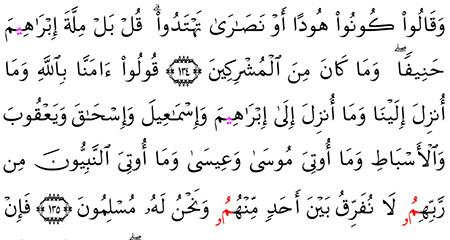 وَقَالُوا۟ كُونُوا۟ هُودًا أَوْ نَصَٰرَىٰ تَهْتَدُوا۟ ۗ قُلْ بَلْ مِلَّةَ إِبْرَٰهِيمَ
حَنِيفًا ۖ وَمَا كَانَ مِنَ ٱلْمُشْرِكِينَ ۝١٣٤ قُولُوٓا۟ ءَامَنَّا بِٱللَّهِ وَمَآ
أُنزِلَ إِلَيْنَا وَمَآ أُنزِلَ إِلَىٰٓ إِبْرَٰهِيمَ وَإِسْمَٰعِيلَ وَإِسْحَٰقَ وَيَعْقُوبَ
وَٱلْأَسْبَاطِ وَمَآ أُوتِىَ مُوسَىٰ وَعِيسَىٰ وَمَآ أُوتِىَ ٱلنَّبِيُّونَ مِن
رَّبِّهِمُۥ لَا نُفَرِّقُ بَيْنَ أَحَدٍ مِّنْهُمُۥ وَنَحْنُ لَهُۥ مُسْلِمُونَ ۝١٣٥ فَإِنْ